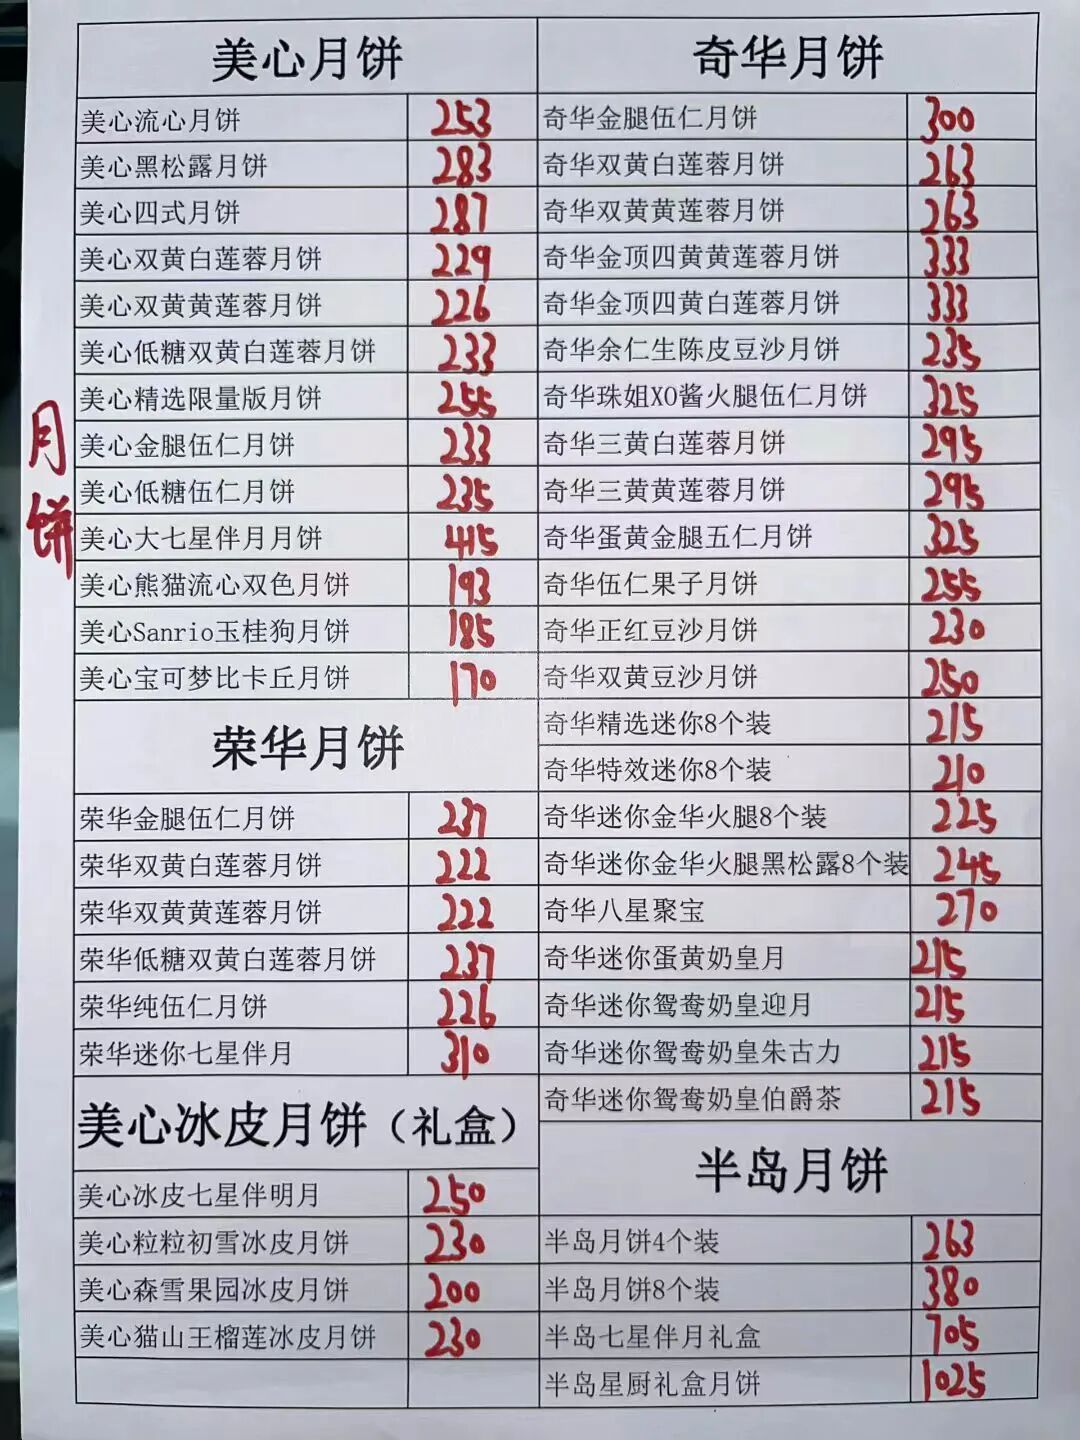 月饼
美心月饼
美心流心月饼 253
美心黑松露月饼 283
美心四式月饼 287
美心双黄白莲蓉月饼 229
美心双黄黄莲蓉月饼 226
美心低糖双黄白莲蓉月饼 233
美心精选限量版月饼 255
美心金腿伍仁月饼 233
美心低糖伍仁月饼 235
美心大七星伴月月饼 415
美心熊猫流心双色月饼 193
美心Sanrio玉桂狗月饼 185
美心宝可梦比卡丘月饼 170
荣华月饼
荣华金腿伍仁月饼 237
荣华双黄白莲蓉月饼 222
荣华双黄黄莲蓉月饼 222
荣华低糖双黄白莲蓉月饼 237
荣华纯伍仁月饼 226
荣华迷你七星伴月 310
美心冰皮月饼（礼盒）
美心冰皮七星伴明月 250
美心粒粒初雪冰皮月饼 230
美心森雪果园冰皮月饼 200
美心猫山王榴莲冰皮月饼 230
奇华月饼
奇华金腿伍仁月饼 300
奇华双黄白莲蓉月饼 263
奇华双黄黄莲蓉月饼 263
奇华金顶四黄黄莲蓉月饼 333
奇华金顶四黄白莲蓉月饼 333
奇华余仁生陈皮豆沙月饼 235
奇华珠姐XO酱火腿伍仁月饼 325
奇华三黄白莲蓉月饼 295
奇华三黄黄莲蓉月饼 295
奇华蛋黄金腿五仁月饼 325
奇华伍仁果子月饼 255
奇华正红豆沙月饼 230
奇华双黄豆沙月饼 250
奇华精选迷你8个装 215
奇华特效迷你8个装 210
奇华迷你金华火腿8个装 225
奇华迷你金华火腿黑松露8个装 245
奇华八星聚宝 270
奇华迷你蛋黄奶皇月 215
奇华迷你鸳鸯奶皇迎月 215
奇华迷你鸳鸯奶皇朱古力 215
奇华迷你鸳鸯奶皇伯爵茶 215
半岛月饼
半岛月饼4个装 263
半岛月饼8个装 380
半岛七星伴月礼盒 705
半岛星厨礼盒月饼 1025